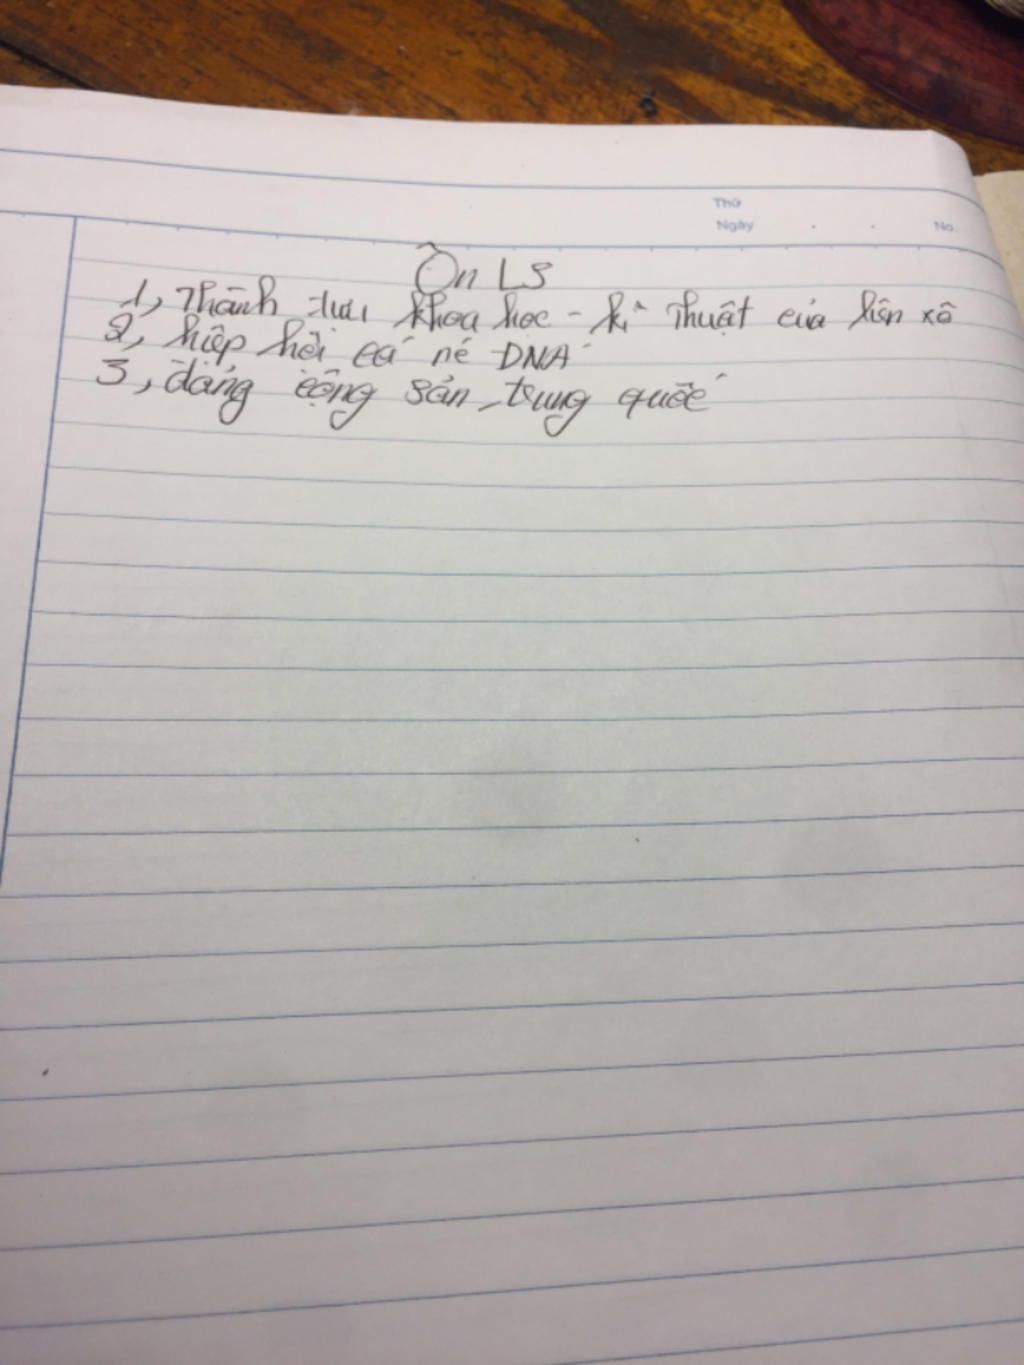 Thứ
Ngày . . No.
Ôn LS
1, Thành tựu khoa học - kĩ thuật của liên xô
2, hiệp hội cá né ĐNA
3, đảng cộng sản trung quốc